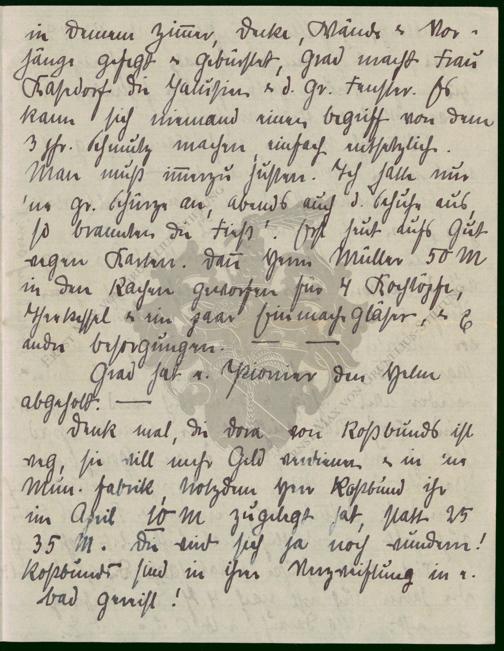 in Deinem Zimmer, Decke, Wände u Vor-
hänge gefegt u gebürstet, Grad macht Frau
Kasdorf die Jalusien u d. gr. Fenster. Es
kann sich niemand einen Begriff von dem
3 jhr. Schmutz machen, einfach entsetzlich.
Man muß immerzu husten. Ich hatte nur
'ne gr. Schürze an, abends auch d. Schuhe aus
so brannten die Füße. Erst heut aufs Gut
wegen Karten. Dann Herrn Müller 50 M
in den Rachen geworfen für 4 Kochtöpfe,
Theekessel u ein paar Einmachgläser, u
andre Besorgungen. — —
Grad hat e. Pionier den Helm
abgeholt. —
Denk mal, die Dora von Roßbunds ist
weg, sie will mehr Geld verdienen u in 'ne
Mun. Fabrik trotzdem Herr Roßbund ihr
im April 10 M zugelegt hat, statt 25
35 M. Die wird sich ja noch wundern!
Roßbunds sind in ihrer Verzweiflung in e.
Bad gereist!